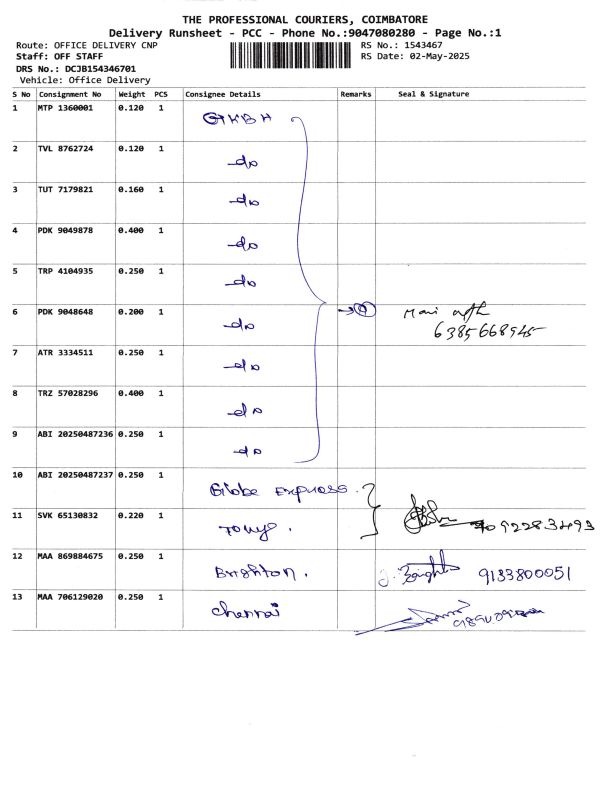 THE PROFESSIONAL COURIERS, COIMBATORE
Delivery Runsheet - PCC - Phone No.:9047080280 - Page No.:1
Route: OFFICE DELIVERY CNP RS No.: 1543467
Staff: OFF STAFF RS Date: 02-May-2025
DRS No.: DCJB154346701
Vehicle: Office Delivery
S No Consignment No Weight PCS Consignee Details Remarks Seal & Signature
1 MTP 1360001 0.120 1 GKBH
2 TVL 8762724 0.120 1 -do
3 TUT 7179821 0.160 1 -do
4 PDK 9049878 0.400 1 -do
5 TRP 4104935 0.250 1 -do
6 PDK 9048648 0.200 1 -do → 9 Mari
6385668945
7 ATR 3334511 0.250 1 -do
8 TRZ 57028296 0.400 1 -do
9 ABI 20250487236 0.250 1 -do
10 ABI 20250487237 0.250 1 Globe Express.
11 SVK 65130832 0.220 1 Tonys.
12 MAA 869884675 0.250 1 Brighton. J. Bright 9133800051
13 MAA 706129020 0.250 1 Chennai